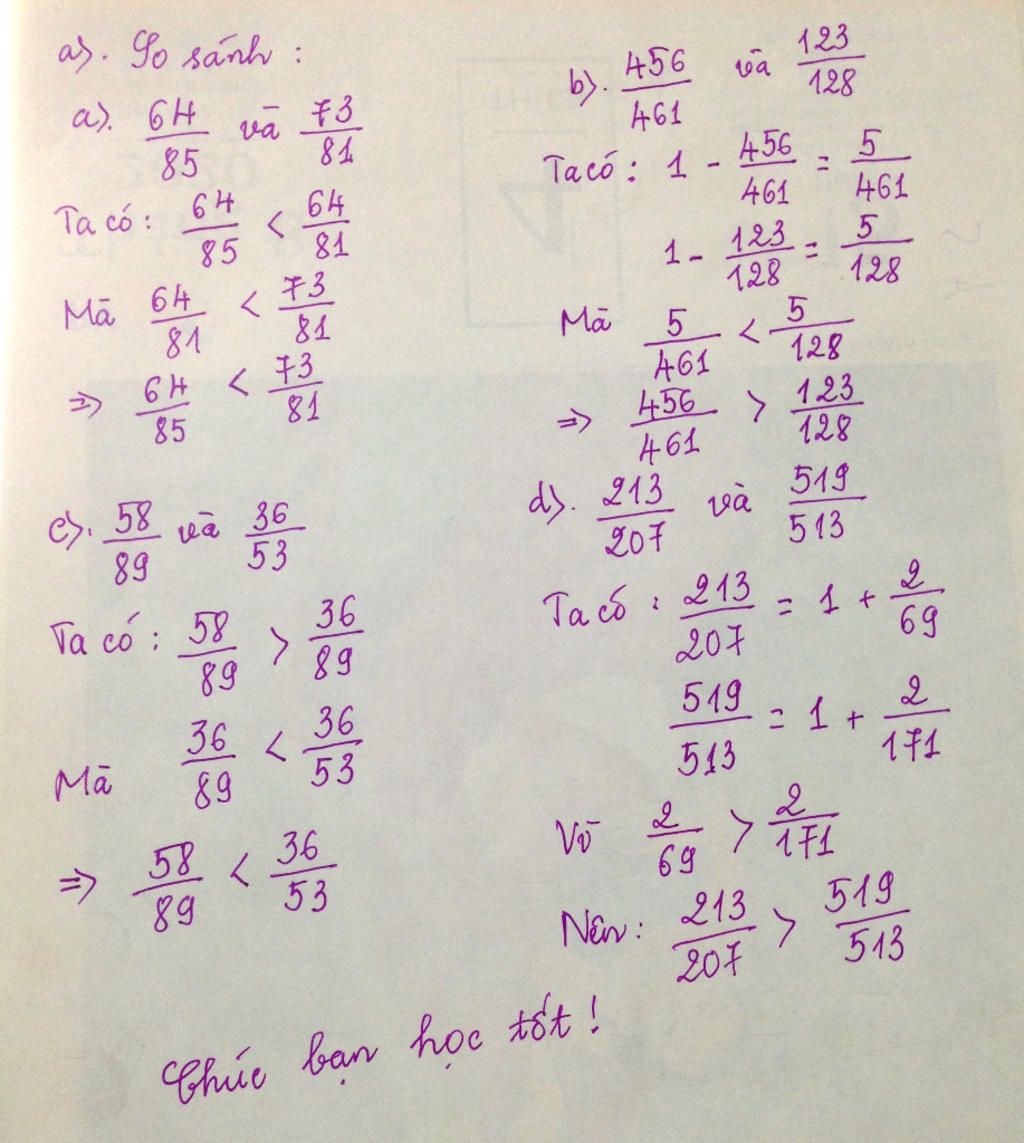 a). So sánh :
a). 64/85 và 73/81
Ta có : 64/85 < 64/81
Mà 64/81 < 73/81
=> 64/85 < 73/81
b). 456/461 và 123/128
Ta có : 1 - 456/461 = 5/461
1 - 123/128 = 5/128
Mà 5/461 < 5/128
=> 456/461 > 123/128
c). 58/89 và 36/53
Ta có : 58/89 > 36/89
Mà 36/89 < 36/53
=> 58/89 < 36/53
d). 213/207 và 519/513
Ta có : 213/207 = 1 + 2/69
519/513 = 1 + 2/171
Vì 2/69 > 2/171
Nên : 213/207 > 519/513
Chúc bạn học tốt !